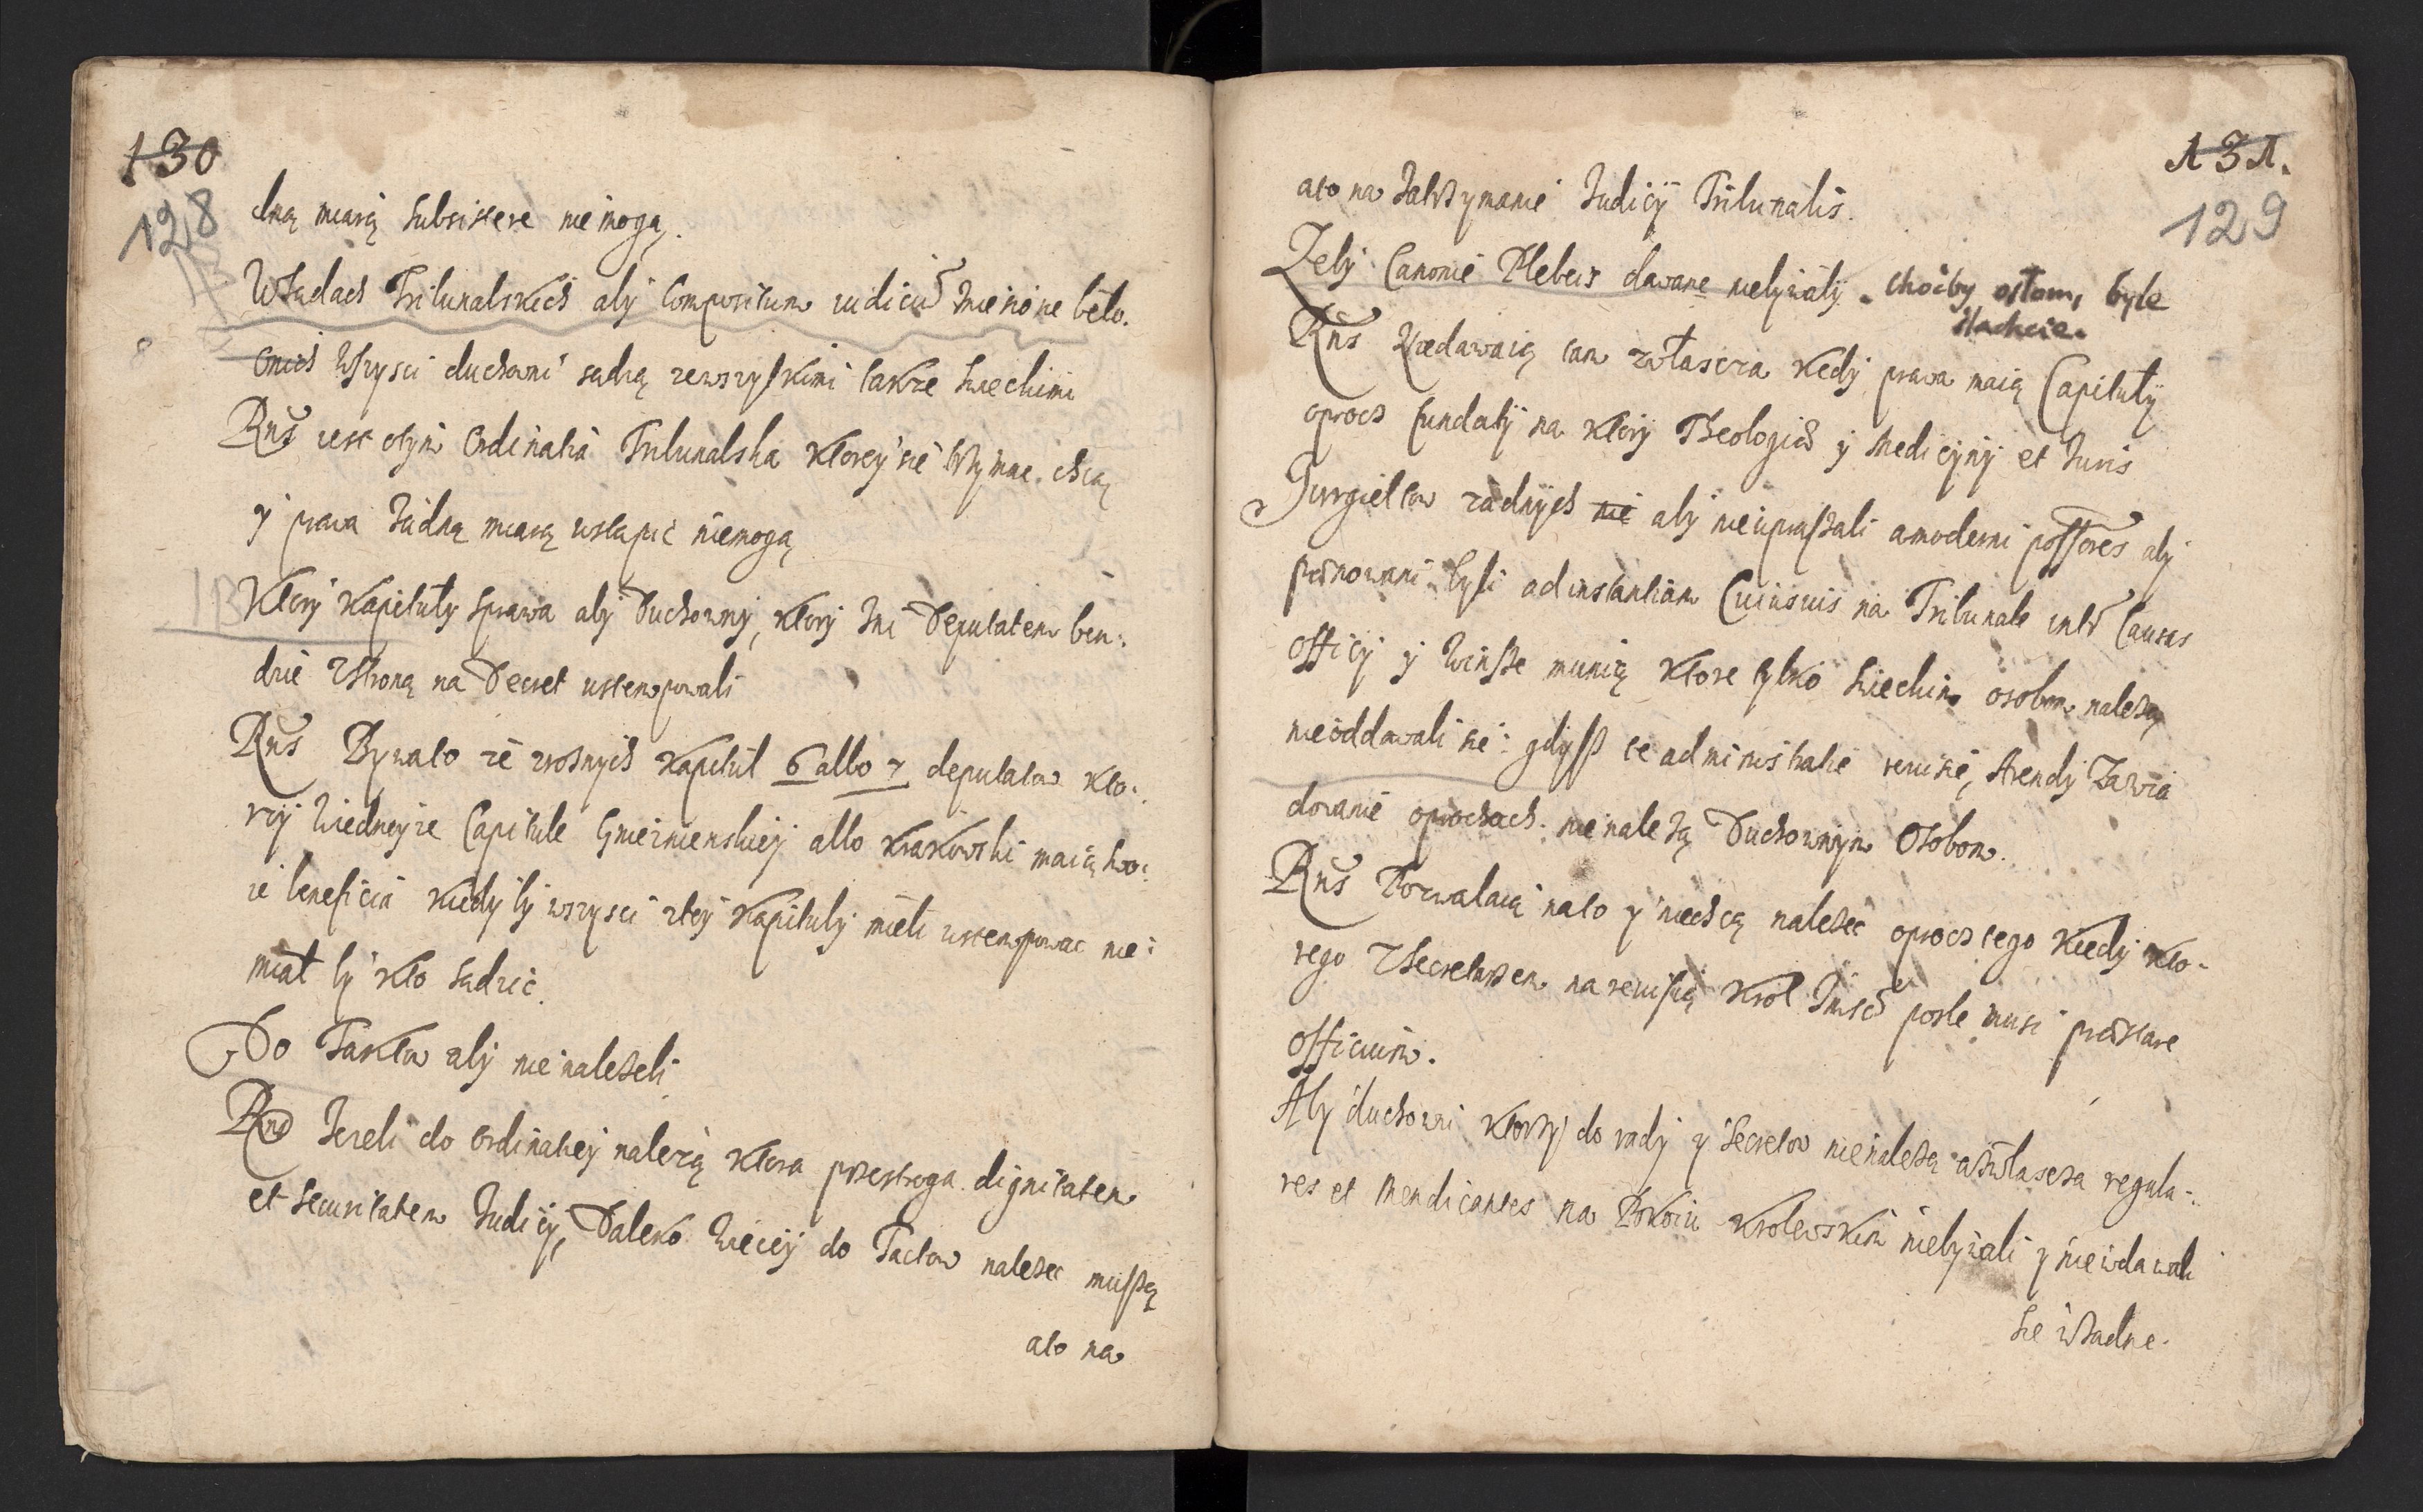 130
128
dną miarą subsistere niemogą.
W Sądach Tribunalskich aby compositum iudiciũ imienione beło.
onich wszysci duchowni sądzą zewszystkimi także swieckimi
Rñs iest otym Ordinatia Tribunalska ktorey się trzymac chcą
y prawa żadną miarą ustąpic niemogą
Ktory Kapituły sprawa aby Duchowny, ktory Deputatem ben:
dzie zstroną na Decret ustempowali
Rñs Bywało ze zroznych Kapituł 6 albo 7 deputatow kto:
rzy wiedneyze Capitule Gnieznienskiey albo Krakowski maią swo:
ie beneficia kiedy by wszysci ztey Kapituły mieli ustempowac nie:
miał by kto sądzic.
Do Taktow aby nienależeli
Rñs Jezeli do Ordinatiey nalezą ktora przestrzega dignitatem
et securitatem Judicij, Daleko więcey do Tactow należec muszą
ato na
131.
129
ato na zatrzymanie Judicij Tribunalis.
Zeby Canonie Plebeis dawane niebywały. choćby osłom, byle
slachcie.
Rñs Nie dawaią tam zwłascza kędy prawa maią Capituły
oprocz fundatij na ktory Theologiey y Medicyny et Juris
Jurgieltow zadnych nie aby nieupraszali a moderni possores aby
pozwowani byli ad instantiam Cuiusuis na Tribunale intr Causas
officij y winsze munią ktore tylko swieckim osobom należą
nieoddawali sie: gdysz te administratie reuisie, Arendy Zawia
dowanie oprochach. nienależą Duchownym Osobom.
Rñs Pozwalaią nato y niechcą należec oprocz tego kiedy kto-
rego zSecretarzem na reuisią Krol Jmsc posle musi præstare
officium.
Aby duchowni ktorzy do rady y secretow nienależą azwłascza regula-
res et mendicantes na Pokoiu Krolewskim niebywali y niewdawali
sie wżadne.